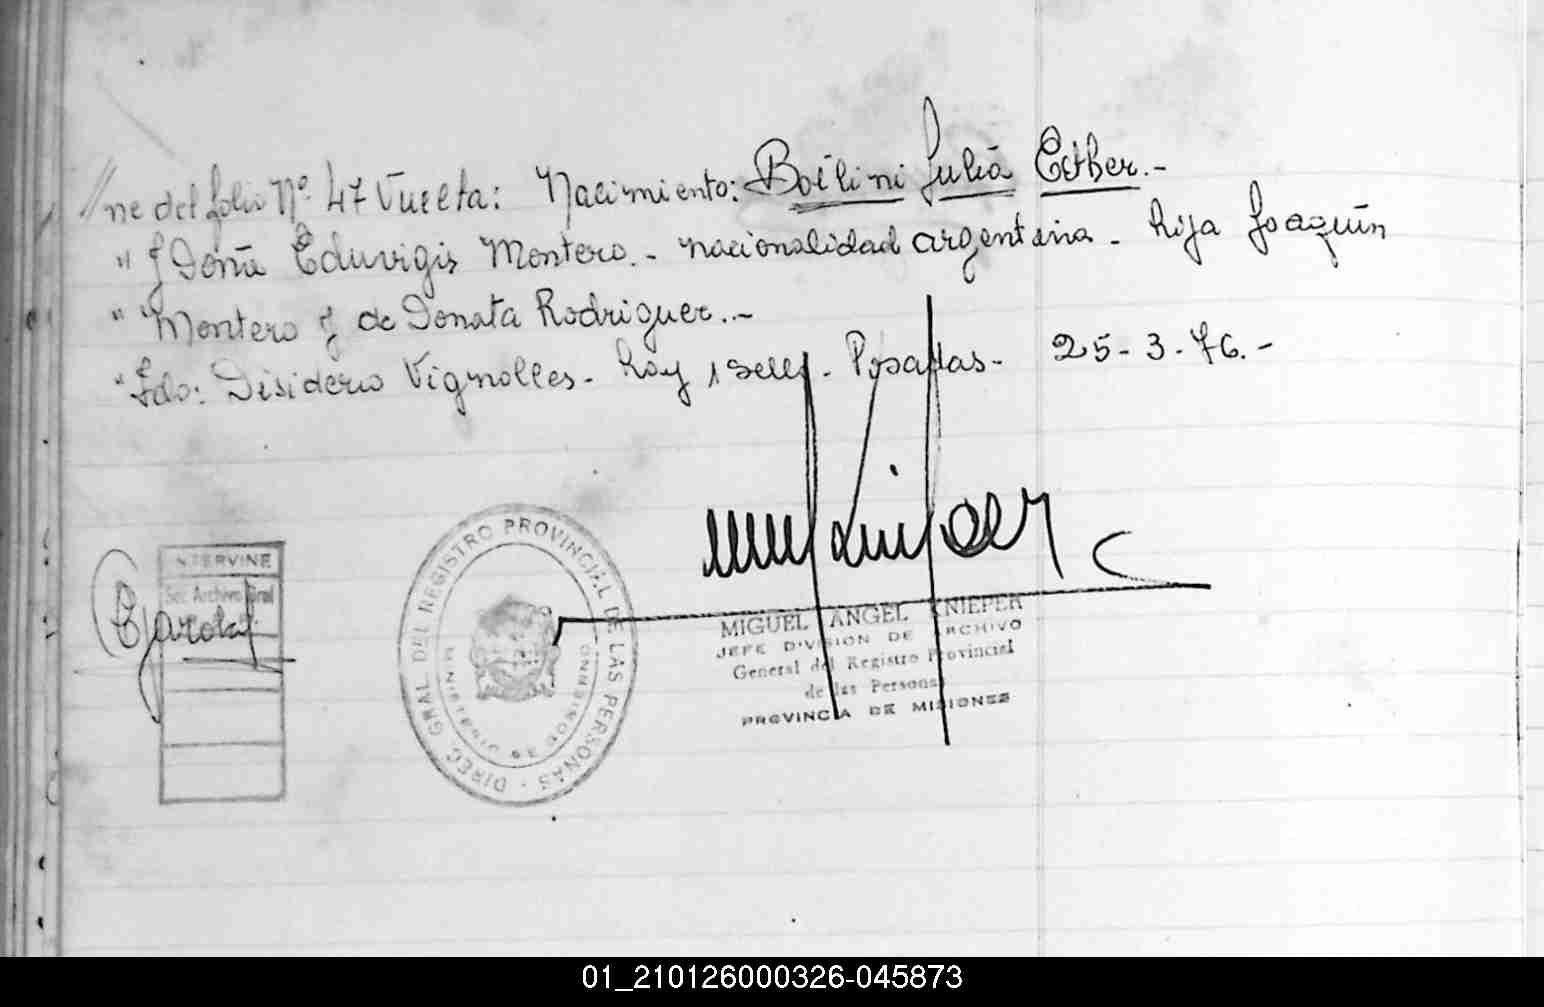 //ne del folio Nº 47 Vuelta: Nacimiento: Boélini Julia Esther.-
" y Doña Eduvigis Montero.- nacionalidad argentina - hija Joaquín
" Montero y de Donata Rodriguez.-
" Fdo: Disiderio Vignolles - hay 1 sello - Posadas - 25-3-76.-
INTERVINE
Sec. Archivo Gral
DIREC. GRAL. DEL REGISTRO PROVINCIAL DE LAS PERSONAS
MINISTERIO DE GOBIERNO
MIGUEL ANGEL KNIEPER
JEFE DIVISION DE ARCHIVO
General del Registro Provincial
de las Personas
PROVINCIA DE MISIONES
01_210126000326-045873